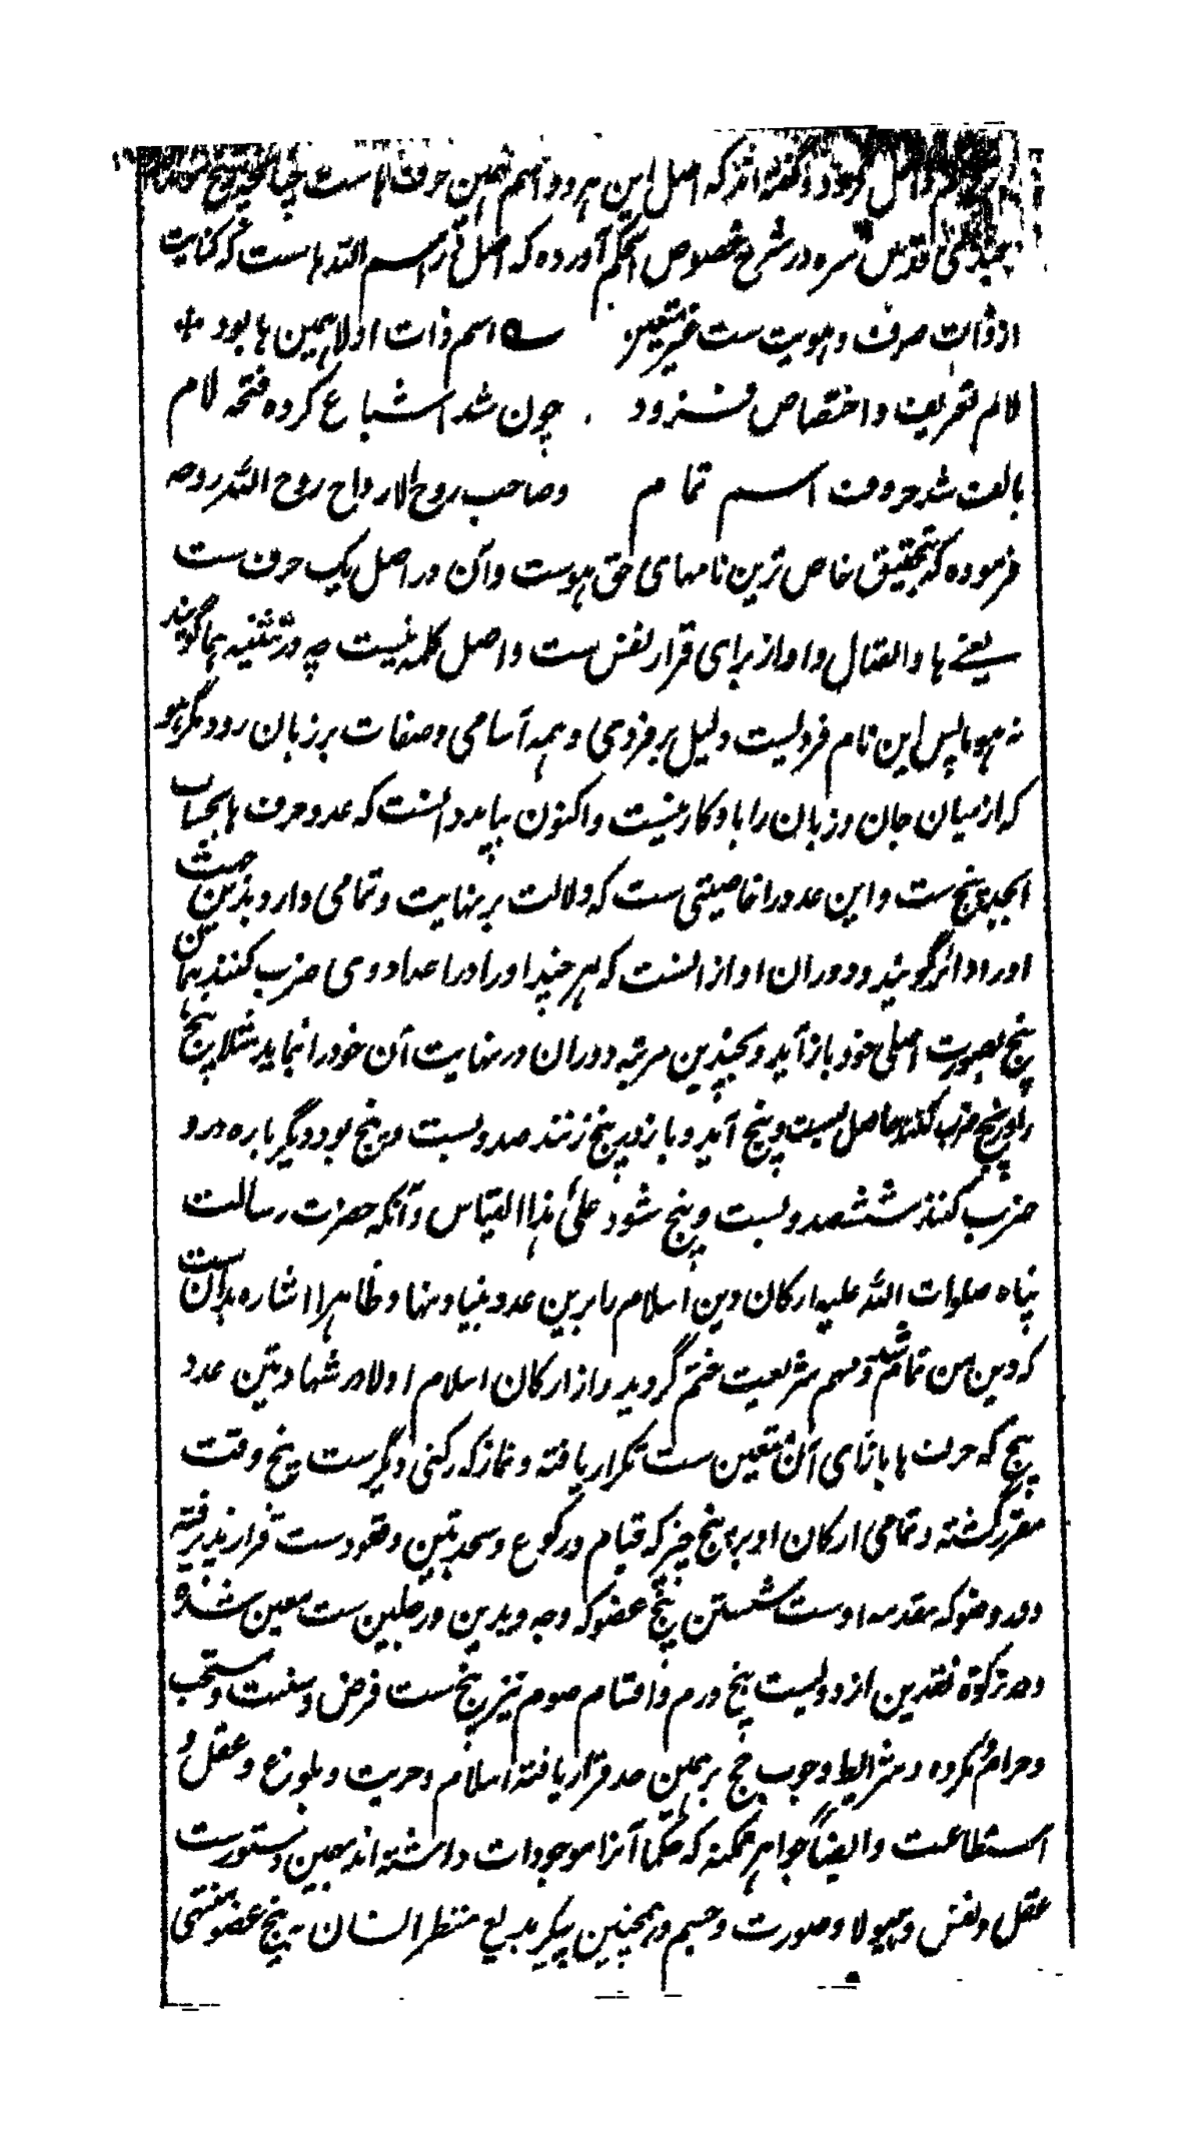 واصل گفته‌اند که اصل این هر دو اسم همین حرف ها است چنانچه شیخ
جندی قدس سره در شرح فصوص الحکم آورده که اصل در اسم الله ها است که کنایت
از ذات صرف و هویت ست غیر متعین ؎ اسم ذات اولا همین ها بود +
لام تعریف و اختصاص فزود . چون شد اشباع کرده فتحه لام
بالف شد حروف اسم تمام وصاحب روح الارواح روح الله روحه
فرموده که بتحقیق خاص ترین نامهای حق هوست و آن در اصل یک حرف ست
یعنے ها و اتصال واو از برای قرار نفس ست و اصل کلمه نیست چه در تثنیه هما گویند
نه هوما پس این نام فردیست دلیل بر فردی و همه آسامی و صفات بر زبان رود مگر هو
که از میان جان و زبان را با و کار نیست و اکنون بباید دانست که عدد حرف ها بحساب
ابجد پنج ست و این عدد را خاصیتی ست که دلالت بر نهایت و تمامی دارد بدین جهت
او را دائر گویند و دوران او از انست که هر چند او را در اعداد وی ضرب کنند همان
پنج بصورت اصلی خود باز آید و بچندین مرتبه دوران در نهایت آن خود را نماید مثلا پنج
را در پنج ضرب کنند حاصل بیست و پنج آید و باز در پنج زنند صد و بیست و پنج بود و دیگر باره در و
ضرب کنند ششصد و بیست و پنج شود علیٰ هذا القیاس و آنکه حضرت رسالت
پناه صلوات الله علیه ارکان دین اسلام را برین عدد بنیاد نهاد ظاهرا اشاره بدان ست
که دین من تمام شد و سهم شریعت ختم گردید و از ارکان اسلام اولا در شهادتین عدد
پنج که حرف ها بازای آن متعین ست تکرار یافته و نماز که رکنی دیگر ست پنج وقت
مقرر گشته و تمامی ارکان او بر پنج چیز که قیام و رکوع و سجدتین و قعود ست قرار پذیرفته
و در وضو که مقدمه اوست شستن پنج عضو که وجه و یدین و رجلین ست معین شده
و در زکوة نقدین از دویست پنج درم و اقسام صوم نیز پنج ست فرض و سنت و مستحب
و حرام و مکروه و شرایط وجوب حج بر همین عدد قرار یافته اسلام و حریت و بلوغ و عقل و
استطاعت و ایضاً جواهر ممکنه که حکما آنرا موجودات داشته اند بهمین دستورست
عقل و نفس و هیولا و صورت و جسم و همچنین پیکر بدیع منظر انسان به پنج عضو منتهی